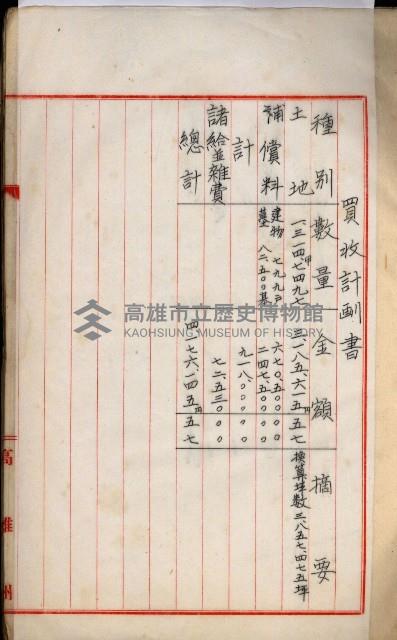 買收計劃書
種別 數量 金額 摘要
土地 一、三一四甲七四九七 三、一八五、六一五円五七 換算坪數三、八五七、四七五坪
補償料 建物 七九九戶 六七〇、五〇〇〇〇
墓 八二、五〇〇基 二四七、五〇〇〇〇
計 九一八、〇〇〇〇〇
諸給並雜費 七二、五三〇〇〇
總計 四一七六、一四五円五七
高雄州
高雄市立歷史博物館
KAOHSIUNG MUSEUM OF HISTORY